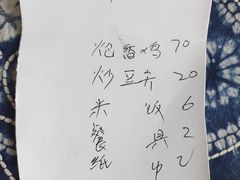 炝香鸡 70
炒豆芽 20
米饭 6
餐具 2
纸巾 2